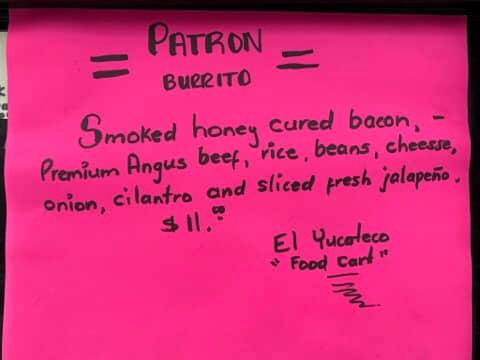 = PATRON =
BURRITO
Smoked honey cured bacon, -
Premium Angus beef, rice, beans, cheesse,
onion, cilantro and sliced fresh jalapeño.
$11.00
El Yucateco
"Food Cart"